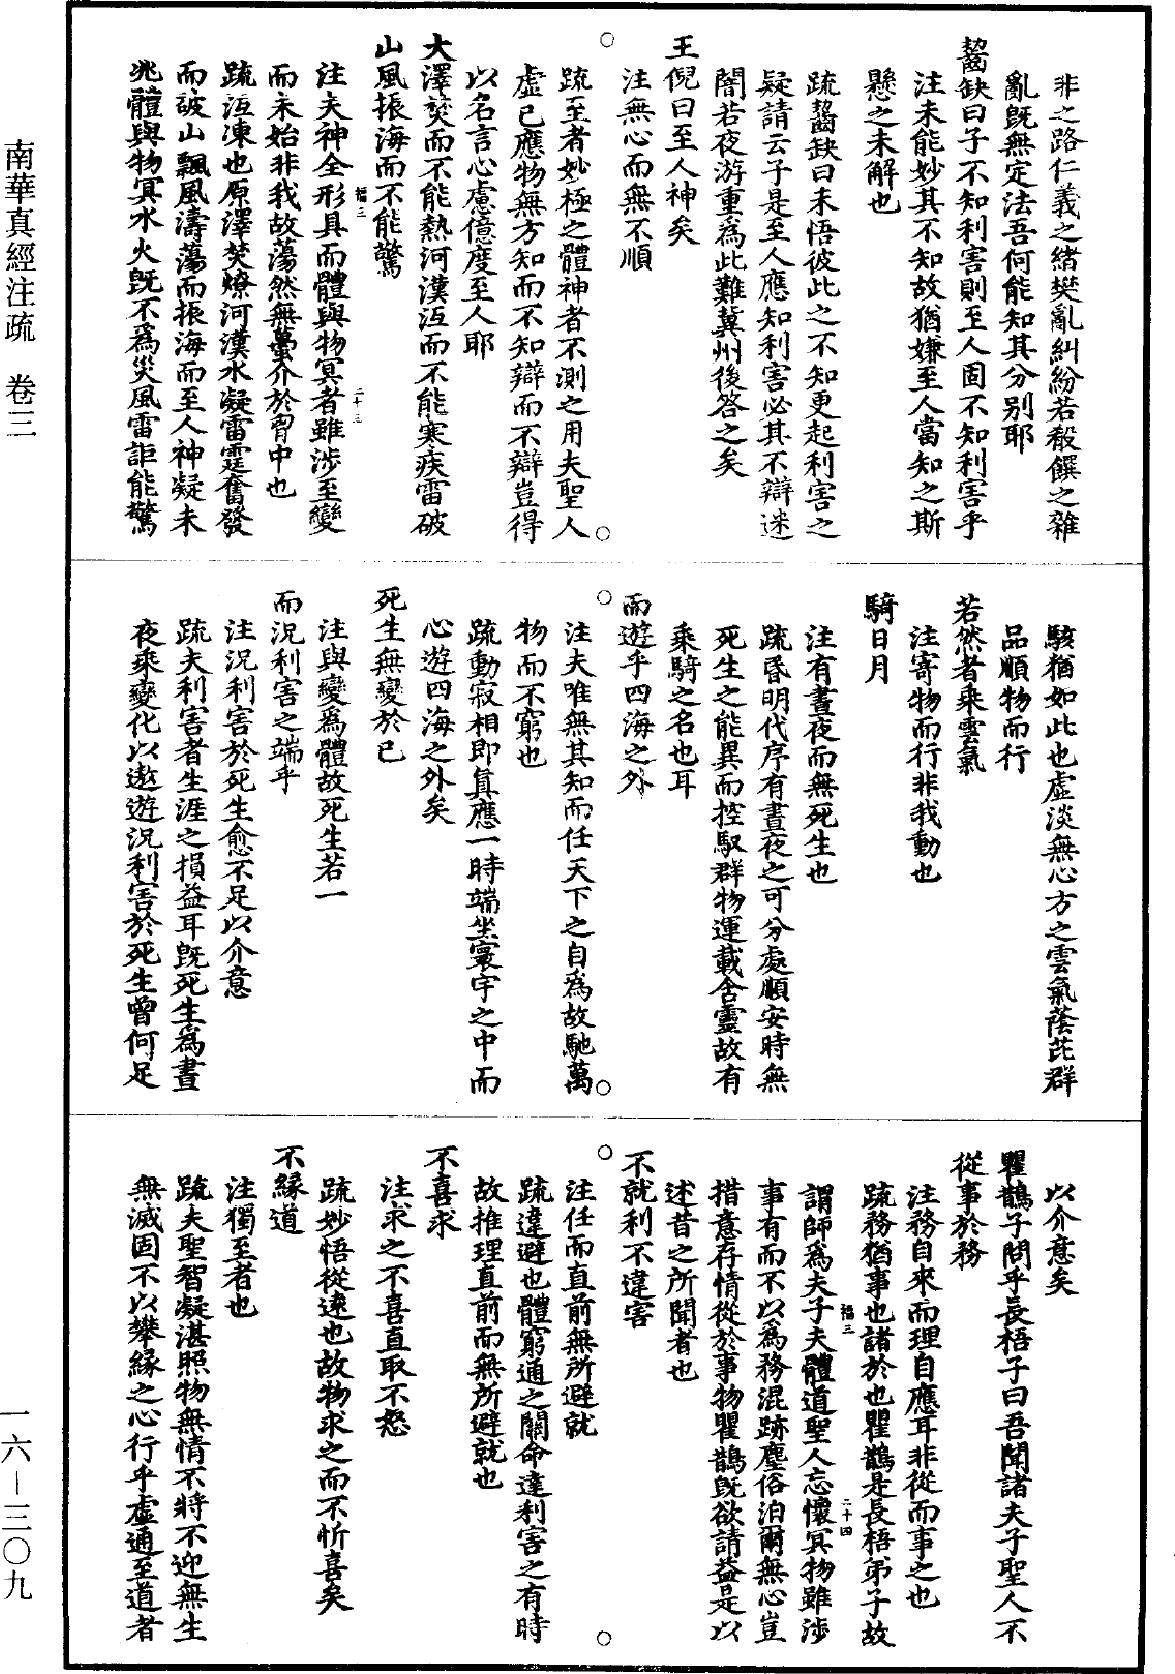 非之路仁義之緒樊亂糾紛若殽饌之雜
亂既無定法吾何能知其分别耶
齧缺曰子不知利害則至人固不知利害乎
注未能妙其不知故猶嫌至人當知之斯
懸之未解也
疏齧缺曰未悟彼此之不知更起利害之
疑請云子是至人應知利害必其不辯迷
闇若夜游重為此難冀州後答之矣
王倪曰至人神矣
注無心而無不順
疏至者妙極之體神者不測之用夫聖人
虛己應物無方知而不知辯而不辯豈得
以名言心慮億度至人耶
大澤焚而不能熱河漢沍而不能寒疾雷破
山風振海而不能驚
注夫神全形具而體與物冥者雖涉至變
福三
二十三
而未始非我故蕩然無蠆介於胷中也
疏沍凍也原澤焚燎河漢水凝雷霆奮發
而破山飄風濤蕩而振海而至人神凝未
兆體與物冥水火既不為災風雷詎能驚
駭猶如此也虛淡無心方之雲氣蔭芘群
品順物而行
若然者乘雲氣
注寄物而行非我動也
騎日月
注有晝夜而無死生也
疏昏明代序有晝夜之可分處順安時無
死生之能異而控馭群物運載含靈故有
乘騎之名也耳
而遊乎四海之外
注夫唯無其知而任天下之自為故馳萬
物而不窮也
疏動寂相即真應一時端坐寰宇之中而
心遊四海之外矣
死生無變於已
注與變為體故死生若一
而況利害之端乎
注況利害於死生愈不足以介意
疏夫利害者生涯之損益耳既死生為晝
夜乘變化以遨遊況利害於死生曾何足
以介意矣
瞿鵲子問乎長梧子曰吾聞諸夫子聖人不
從事於務
注務自來而理自應耳非從而事之也
疏務猶事也諸於也瞿鵲是長梧弟子故
謂師為夫子夫體道聖人忘懷冥物雖涉
福三
二十四
事有而不以為務混跡塵俗泊爾無心豈
措意存情從於事物瞿鵲既欲請益是以
述昔之所聞者也
不就利不違害
注任而直前無所避就
疏違避也體窮通之關命達利害之有時
故推理直前而無所避就也
不喜求
注求之不喜直取不怒
疏妙悟從遠也故物求之而不忻喜矣
不緣道
注獨至者也
疏夫聖智凝湛照物無情不將不迎無生
無滅固不以攀緣之心行乎虛通至道者
南華真經注疏 卷三
一六—三〇九